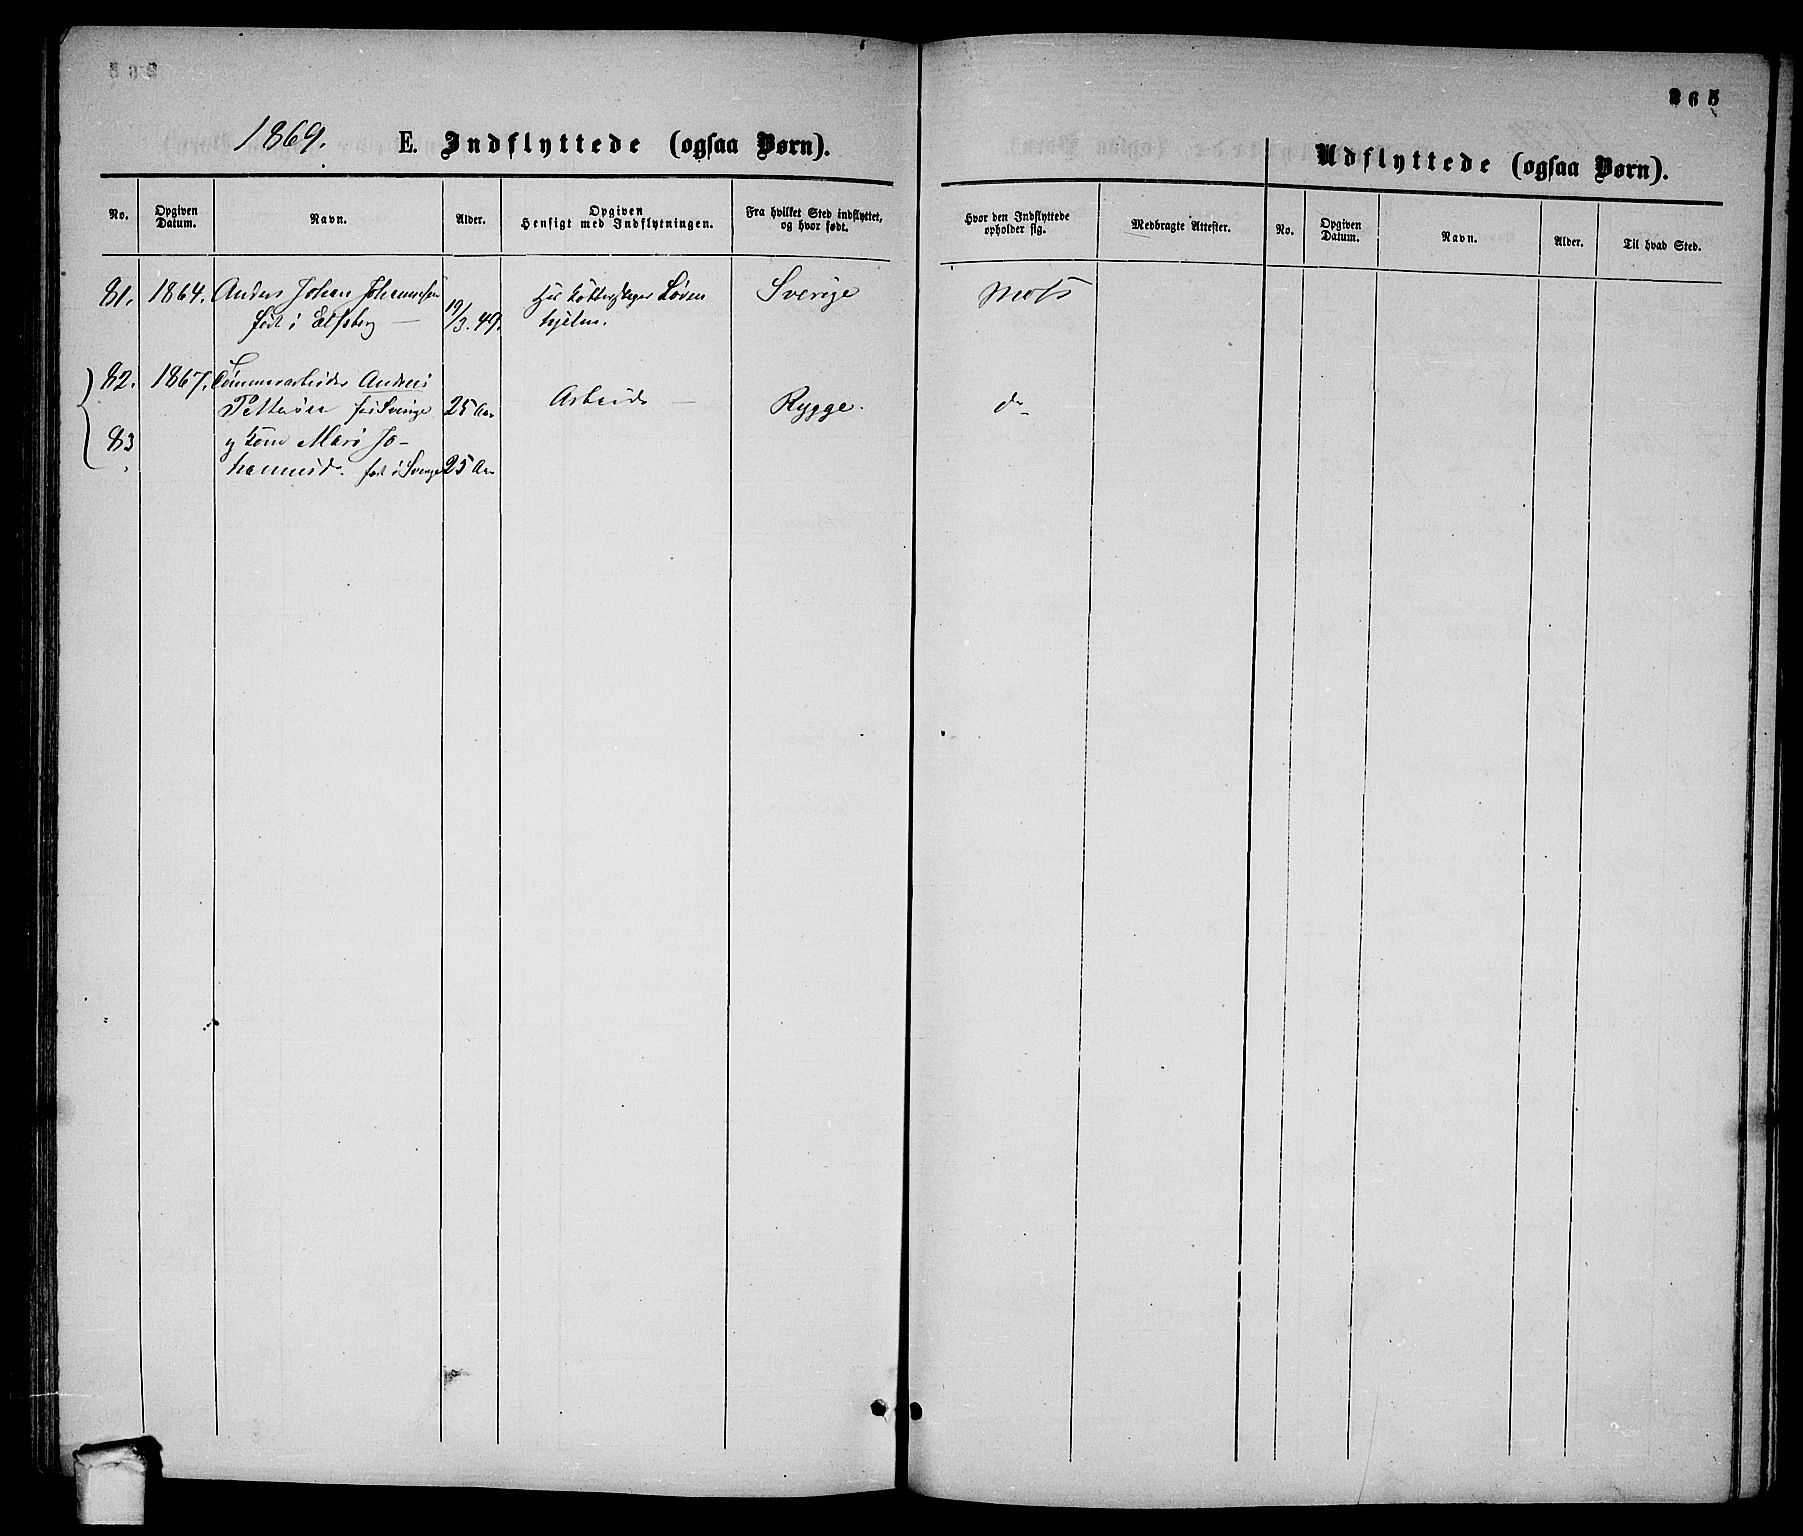 265
1869. E. Indflyttede (ogsaa Børn).
Udflyttede (ogsaa Børn).
No. Opgiven Datum. Navn. Alder. Opgiven Hensigt med Indflytningen. Fra hvilket Sted indflyttet, og hvor født. Hvor den Indflyttede opholder sig. Medbragte Attester. No. Opgiven Datum. Navn. Alder. Til hvad Sted.
81. 1864. Anders Johan Johannesen Sverige Moss
født i Elfsborg 19/3.49. hjelm.
82. 1867. Andreas
født Sverige 25 Aar Arbeide Rygge. do
83 og Kone Jo-
hannesd. født i Sverige 25 Aar